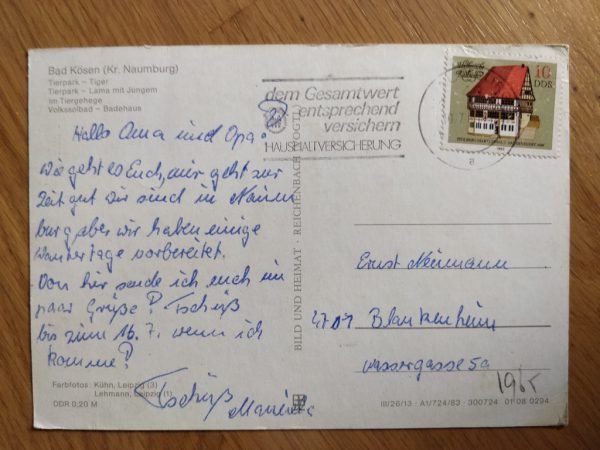 Bad Kösen (Kr. Naumburg)
Tierpark – Tiger
Tierpark – Lama mit Jungem
Im Tiergehege
Volkssolbad – Badehaus
Hallo Oma und Opa!
Wie geht es Euch, mir geht zur
Zeit gut Wir sind in Naum
burg aber wir haben einige
Wandertage vorbereitet.
Von hier sende ich euch ein
paar Grüße! Tschüß
bis zum 16.7. wenn ich
komme!
Tschüß
Farbfotos: Kühn, Leipzig (3)
Lehmann, Leipzig (1)
DDR 0,20 M
BILD UND HEIMAT · REICHENBACH
dem Gesamtwert
entsprechend
versichern
HAUSHALTVERSICHERUNG
10
DDR
Ernst Neumann
4701 Blankenheim
Wassergasse 5a
III/26/13 · A1/724/83 · 300724 01 08 0294